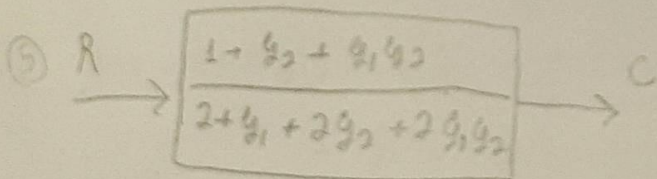 ⑤ R C
1 + g₂ + g₁g₂
2 + g₁ + 2g₂ + 2g₁g₂